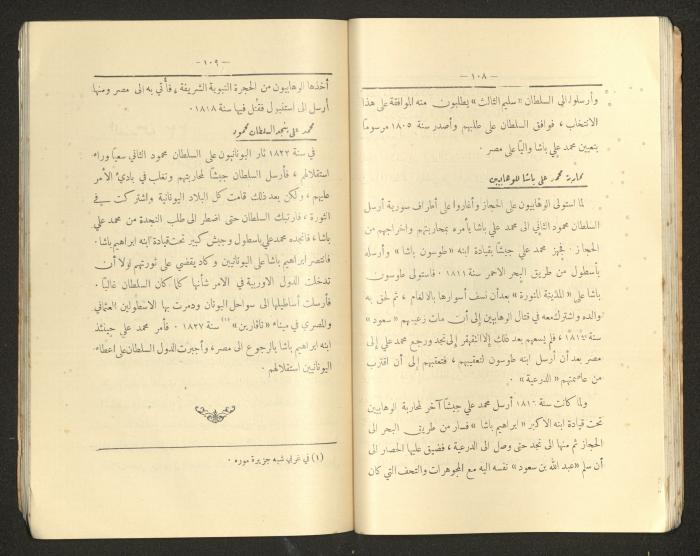 — ١٠٨ —
وأرسلوا الى السلطان «سليم الثالث» يطلبون منه الموافقة على هذا
الانتخاب ، فوافق السلطان على طلبهم وأصدر سنة ١٨٠٥ مرسوماً
بتعيين محمد علي باشا والياً على مصر .
محاربة محمد علي باشا للوهابيين
لما استولى الوهابيون على الحجاز وأغاروا على أطراف سورية أرسل
السلطان محمود الثاني الى محمد علي باشا يأمره بمحاربتهم واخراجهم من
الحجاز . فجهز محمد علي جيشاً بقيادة ابنه «طوسون باشا» وأرسله
بأسطول من طريق البحر الاحمر سنة ١٨١١ ، فاستولى طوسون
باشا على «المدينة المنورة» بعد أن نسف أسوارها بالالغام ، ثم لحق به
والده واشترك معه في قتال الوهابيين إلى أن مات زعيمهم «سعود»
سنة ١٨١٤ ، فلم يسعهم بعد ذلك إلا التقهقر إلى نجد ورجع محمد علي إلى
مصر بعد أن أرسل ابنه طوسون لتعقيبهم ، فتعقبهم إلى أن اقترب
من عاصمتهم «الدرعية» .
ولما كانت سنة ١٨١٦ أرسل محمد علي جيشاً آخر لمحاربة الوهابيين
تحت قيادة ابنه الاكبر «ابراهيم باشا» فسار من طريق البحر الى
الحجاز ثم منها الى نجد حتى وصل الى الدرعية ، فضيق عليها الحصار الى
أن سلم «عبد الله بن سعود» نفسه اليه مع المجوهرات والتحف التي كان
— ١٠٩ —
أخذها الوهابيون من الحجرة النبوية الشريفة ، فأتي به الى مصر ومنها
أرسل الى استنبول فقُتل فيها سنة ١٨١٨ .
محمد علي ينجد السلطان محمود
في سنة ١٨٢٣ ثار اليونانيون على السلطان محمود الثاني سعياً وراء
استقلالهم ، فأرسل السلطان جيشاً لمحاربتهم وتغلب في بادئ الامر
عليهم ، ولكن بعد ذلك قامت كل البلاد اليونانية واشتركت في
الثورة ، فارتبك السلطان حتى اضطر الى طلب النجدة من محمد علي
باشا ، فانجده محمد علي باسطول وجيش كبير تحت قيادة ابنه ابراهيم باشا .
فانتصر ابراهيم باشا على اليونانيين وكاد يقضي على ثورتهم لولا أن
تدخلت الدول الاوربية في الامر شأنها كما كان السلطان غالباً .
فأرسلت أساطيلها الى سواحل اليونان ودمرت بها الاسطولين العثماني
والمصري في ميناء «نافارين» (١) سنة ١٨٢٧ . فأمر محمد علي حينئذ
ابنه ابراهيم باشا بالرجوع الى مصر ، وأجبرت الدول السلطان على اعطاء
اليونانيين استقلالهم .
(١) في غربي شبه جزيرة موره .